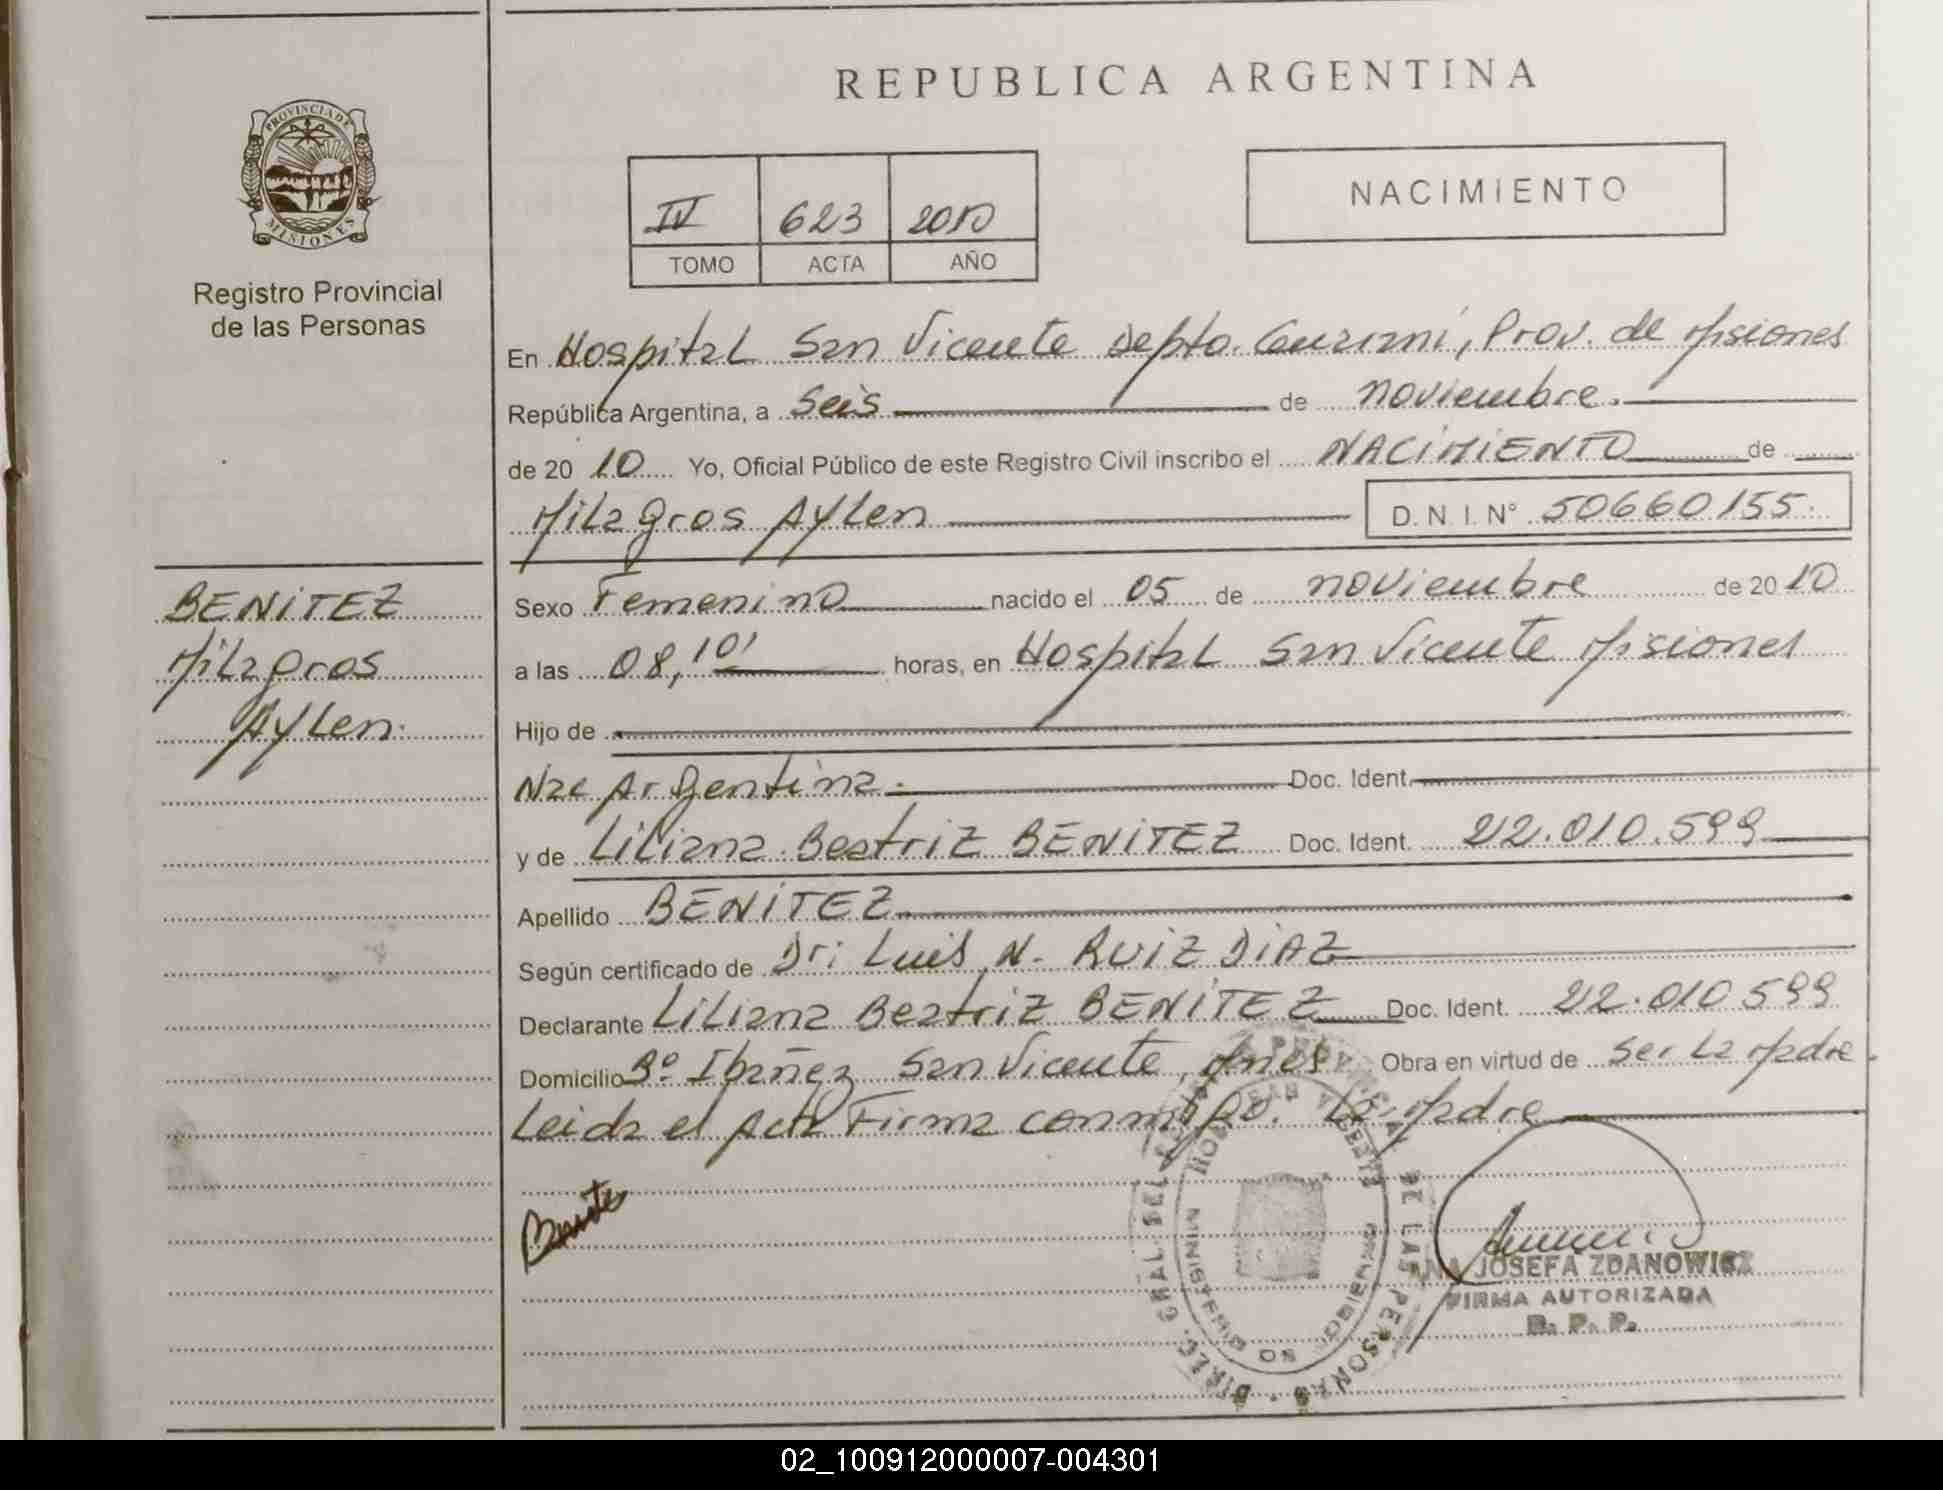 REPUBLICA ARGENTINA
PROVINCIA DE
MISIONES
Registro Provincial
de las Personas
IV 623 2010
TOMO ACTA AÑO
NACIMIENTO
En Hospital San Vicente Depto. Guaraní, Prov. de Misiones
República Argentina, a Seis de noviembre.
de 20 10 Yo, Oficial Público de este Registro Civil inscribo el NACIMIENTO de
Milagros Aylen D.N.I. N° 50660155.
BENITEZ
Milagros
Aylen.
Sexo Femenino nacido el 05 de noviembre de 20 10
a las 08,10' horas, en Hospital San Vicente Misiones
Hijo de
Nac Argentina. Doc. Ident.
y de Liliana Beatriz BENITEZ Doc. Ident. 22.010.599
Apellido BENITEZ
Según certificado de Dr: Luis N. RUIZ DIAZ
Declarante Liliana Beatriz BENITEZ Doc. Ident. 22.010599
Domicilio B° Ibañez San Vicente, Mnes Obra en virtud de Ser La Madre.
Leida el Acta Firma conmigo. La Madre
DIREC. GRAL. DEL DE LAS PERSONAS
MINISTERIO DE GOBIERNO
ANA JOSEFA ZDANOWICZ
FIRMA AUTORIZADA
R. P. P.
02_100912000007-004301